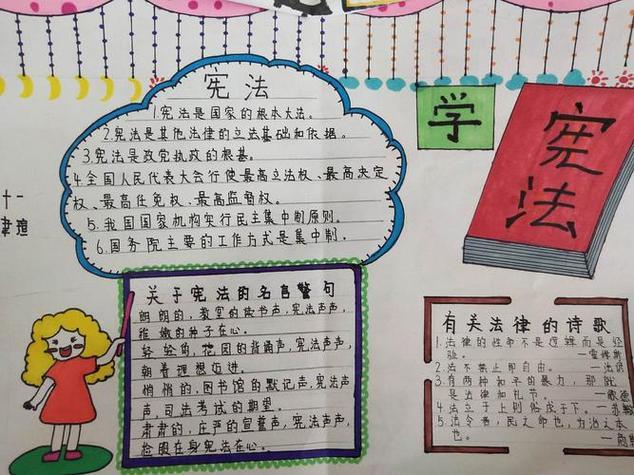 宪法
1.宪法是国家的根本大法。
2.宪法是其他法律的立法基础和依据。
3.宪法是政党执政的根基。
4全国人民代表大会行使最高立法权、最高决定
权、最高任免权、最高监督权。
5.我国国家机构实行民主集中制原则。
6.国务院主要的工作方式是集中制.
学
宪法
十一
关于宪法的名言警句
朗朗的，教室的读书声，宪法声声，
稚嫩的种子在心。
轻轻的，花园的背诵声，宪法声声，
朝着理想迈进。
悄悄的，图书馆的默记声，宪法声
声，司法考试的期望。
肃肃的，庄严的宣誓声，宪法声声，
检服在身宪法在心。
有关法律的诗歌
1.法律的性命不是逻辑而是经
验。
2.法不禁止即自由。
3.有两种和平的暴力，那就
是法律和礼节。
4法立于上则俗成于下。
5法令者，民之命也，为治之本
也。